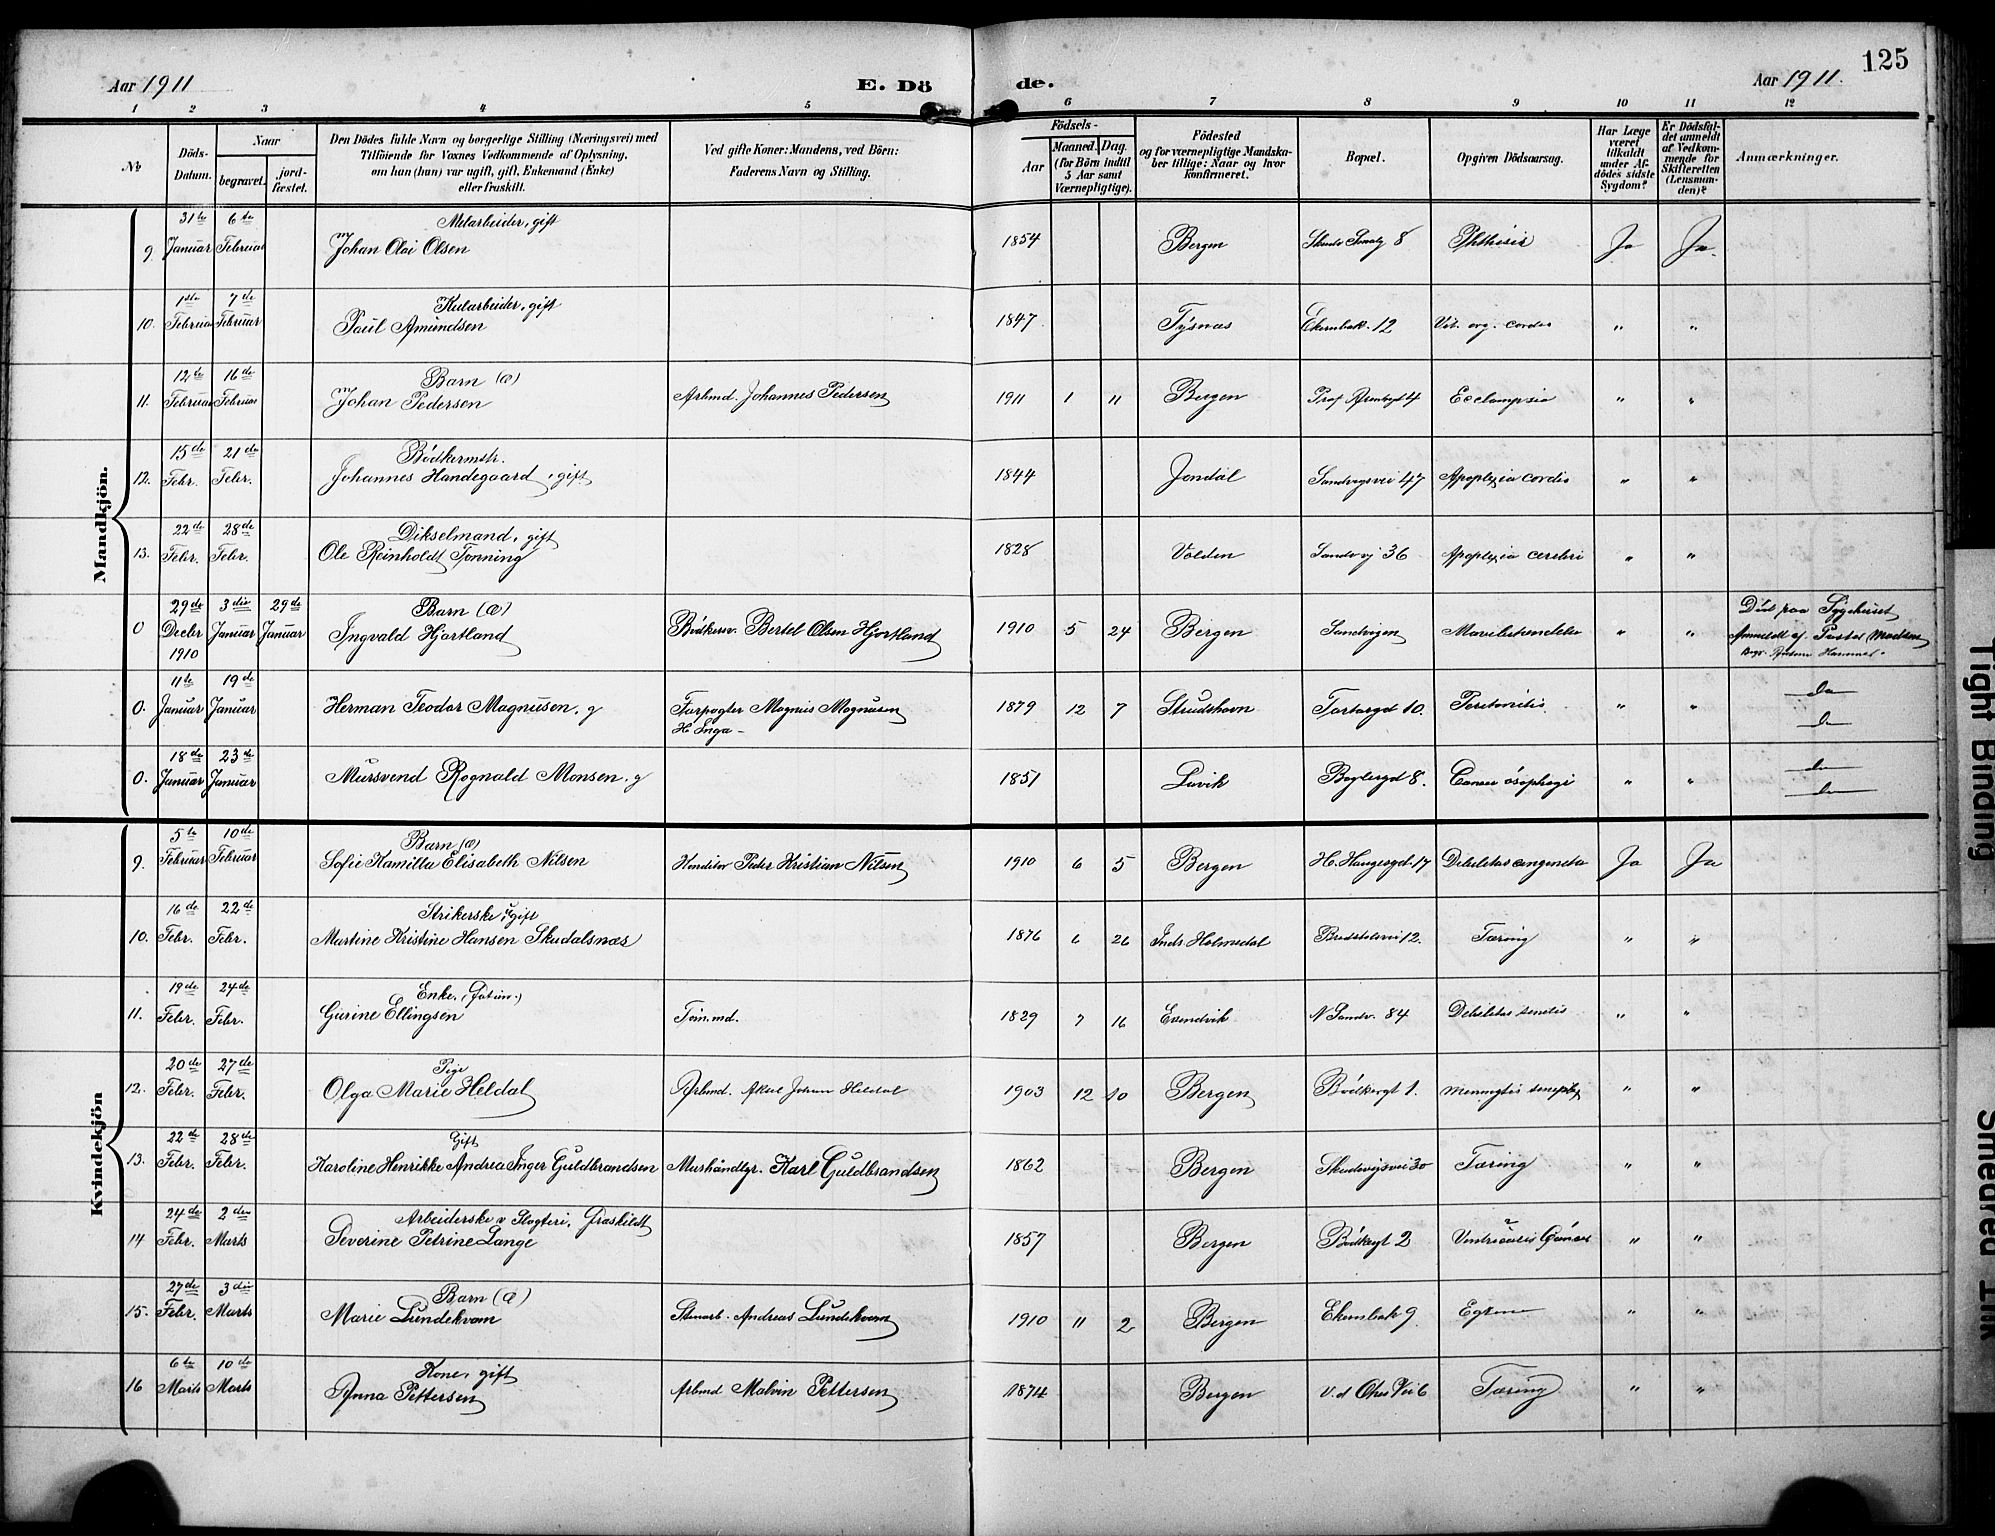 125
Aar 1911 E. Dö de. Aar 1911.
1 2 3 4 5 6 7 8 9 10 11 12
No
Döds-Datum.
Naar
begravet.
jord-fæstet.
Den Dödes fulde Navn og borgerlige Stilling (Næringsvei) med
Tilföiende for Voxnes Vedkommende af Oplysning,
om han (hun) var ugift, gift, Enkemand (Enke)
eller fraskilt.
Ved gifte Koner: Mandens, ved Börn:
Faderens Navn og Stilling.
Födsels-
Aar
Maaned. Dag.
(for Börn indtil
5 Aar samt
Værnepligtige).
Födested
og for værnepligtige Mandska-
ber tillige: Naar og hvor
konfirmeret.
Bopæl.
Opgiven Dödsaarsag.
Har Læge
været
tilkaldt
under Af-
dödes sidste
Sygdom?
Er Dödsfal-
det anmeldt
af Vedkom-
mende for
Skifteretten
(Lensman-
den)?
Anmærkninger.
Mandkjön.
31te 6te Melarbeider, gift
9. Januar Februar Johan Olai Olsen 1854 Bergen 8 Phthisis Ja Ja
1ste 7de gift
10. Februar Februar Paul Amundsen 1847 Tysnæs 12 Vit. org. cordis " "
12te 16de Barn (æ)
11. Februar Februar Johan Pedersen Arbmd. Johannes Pedersen 1911 1 11 Bergen 4 Ecclampsia " "
15de 21de Bödkermstr.
12. Febr. Febr. Johannes Handegaard, gift 1844 Jondal Sandvigsvei 47 Apoplexia cordis " "
22de 28de Dikselmand, gift
13. Febr. Febr. Ole Reinholdt Tonning 1828 Volden Sandv 36 Apoplexia cerebri " "
29de 3die 29de Barn (æ) Död paa Sygehuset
0 Decbr Januar Januar Ingvald Hjortland Bödkersv. Bertel Olsen Hjortland 1910 5 24 Bergen Sandvigen " " Anmeldt af Pastor Madsen
1910
11te 19de do
0. Januar Januar Herman Teodor Magnusen, g Magnus Magnusen 1879 12 7 10. Peritonitis " " do
H. Inga
18de 23de do
0. Januar Januar Mursvend Rognald Monsen, g 1851 Lavik 8. Cancer ösophagi " " do
Kvindekjön
5te 10de Barn (æ)
9. Februar Februar Sofie Kamilla Elisabeth Nilsen Konditor Peder Kristian Nilsen 1910 6 5 Bergen H. Haugesgd. 17 Debilitas congenita Ja Ja
16de 22de Strikerske, ugift
10. Febr. Febr. Martine Kristine Hansen Skudalsnæs 1876 6 26 Indr Holmedal 12. Tæring " "
19de 24de Enke,
11. Febr. Febr. Gurine Ellingsen Töm.md. 1829 7 16 Evindvik N Sandv. 84 Debilitas senilis " "
20de 27de Pige
12. Febr. Febr. Olga Marie Heldal Arbmd. Aksel Johan Heldal 1903 12 10 Bergen Bödkergt 1. " "
22de 28de Gift
13. Febr. Febr. Karoline Henrikke Andrea Inger Guldbrandsen Murhåndlgr. Karl Guldbrandsen 1862 Bergen 30 Tæring " "
24de 2den Arbeiderske v Slagteri, Fraskildt
14 Febr. Marts Severine Petrine Lange 1857 Bergen Bödkergt 2 " "
27de 3die Barn (æ)
15. Febr. Marts Marie Lundekvam Stenarb. Andreas Lundekvam 1910 11 2 Bergen 9 " "
6te 10de Kone, gift
16 Marts Marts Anna Pettersen Arbmd Malvin Pettersen 1874 Bergen 6 Tæring " "
Tight Binding
Smeared Ink